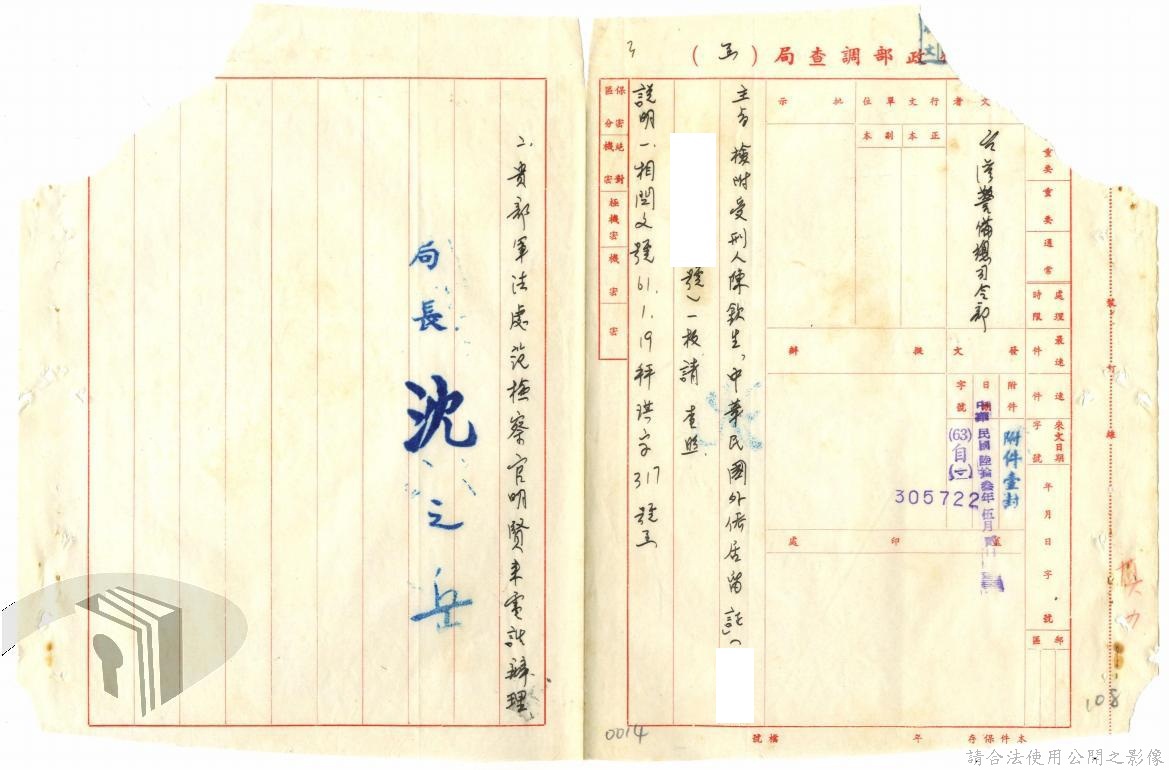 政部調查局(函)
受文者
行文單位
批示
正本
副本
台灣警備總司令部
重要
重要
通常
處理時限
最速件
速件
來文日期字號
年月日字號
郵區
發文
擬辦
附件
日期
字號
附件壹封
中華民國陸拾叁年伍月
(63)自(二)
305722
印處
裝訂線
主旨 檢附受刑人陳欽生「中華民國外僑居留証」(
號)一枚請 查照
說明一.相関文號61.1.19秤琪字317號函
保密區分
絕對機密
極機密
機密
密
二.貴部軍法處范檢察官明賢来電話辦理
局長沈之岳
本件保存 年
檔號
0014
108
請合法使用公開之影像